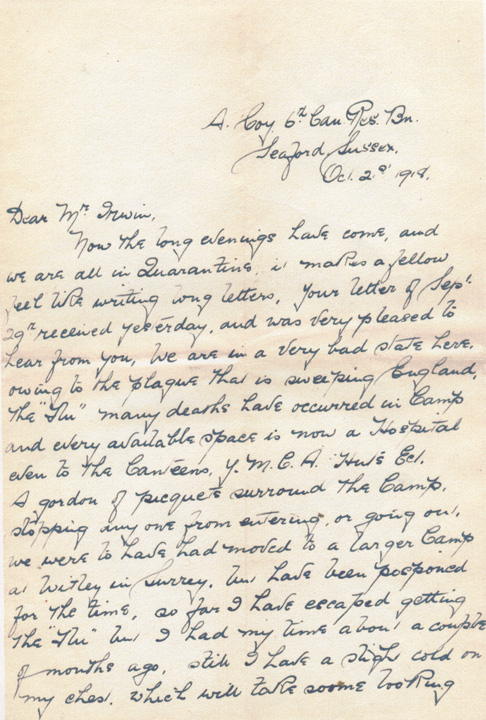 A. Coy. 6th Can Res. Bn.
Seaford Sussex.
Oct. 2nd 1918.
Dear Mr. Irwin,
Now the long evenings have come, and
we are all in Quarantine, it makes a fellow
feel like writing long letters, Your letter of Sept.
29th received yesterday, and was very pleased to
hear from you, We are in a very bad state here,
owing to the plague that is sweeping England,
The "Flu" many deaths have occurred in Camp
and every available space is now a Hospital
even to the Canteens, Y.M.C.A. Huts Ect.
A gordon of picquets surround the Camp,
stopping any one from entering, or going out,
we were to have had moved to a larger Camp
at Witley in Surrey, but have been postponed
for the time, so far I have escaped getting
the "Flu" but I had my time about a couple
of months ago, still I have a sligh cold on
my chest, which will take soome looking